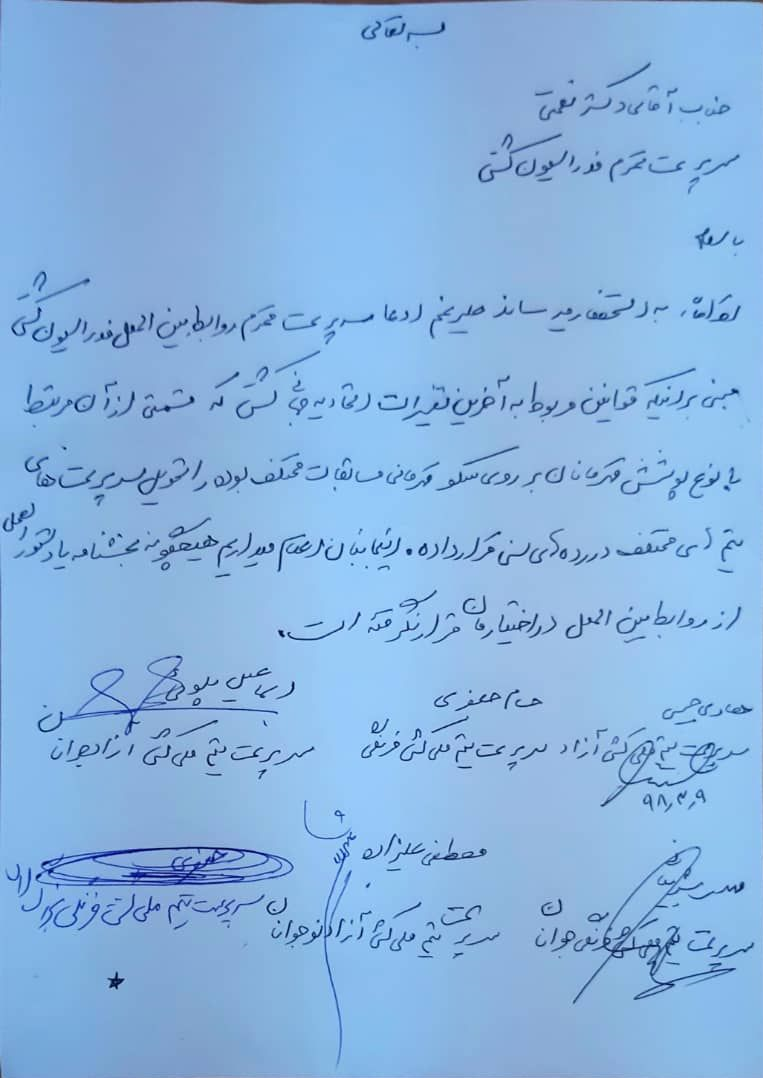 بسمه تعالی
جناب آقای دکتر نعمتی
سرپرست محترم فدراسیون کشتی
با سلام
احتراماً، به استحضار میرساند علیرغم ادعا سرپرست محترم روابط بین الملل فدراسیون کشتی
مبنی براینکه قوانین مربوط به آخرین تغییرات اتحادیه جهانی کشتی که قسمتی از آن مرتبط
با نوع پوشش قهرمانان بر روی سکو قهرمانی مسابقات مختلف بوده را تحویل سرپرست های
تیم های مختلف در رده های سنی قرار داده. اینجانبان اعلام میداریم هیچگونه بخشنامه یا دستورالعملی
از روابط بین الملل در اختیارمان قرار نگرفته است.
هادی حبیبی
سرپرست تیم ملی کشتی آزاد
۹۸٫۳٫۹
جعفری
سرپرست تیم ملی کشتی فرنگی
اسماعیل
سرپرست تیم ملی کشتی آزاد جوانان
سرپرست تیم ملی کشتی فرنگی جوانان
مصطفی علیزاده
سرپرست تیم ملی کشتی آزاد نوجوانان
جعفری
سرپرست تیم ملی کشتی فرنگی